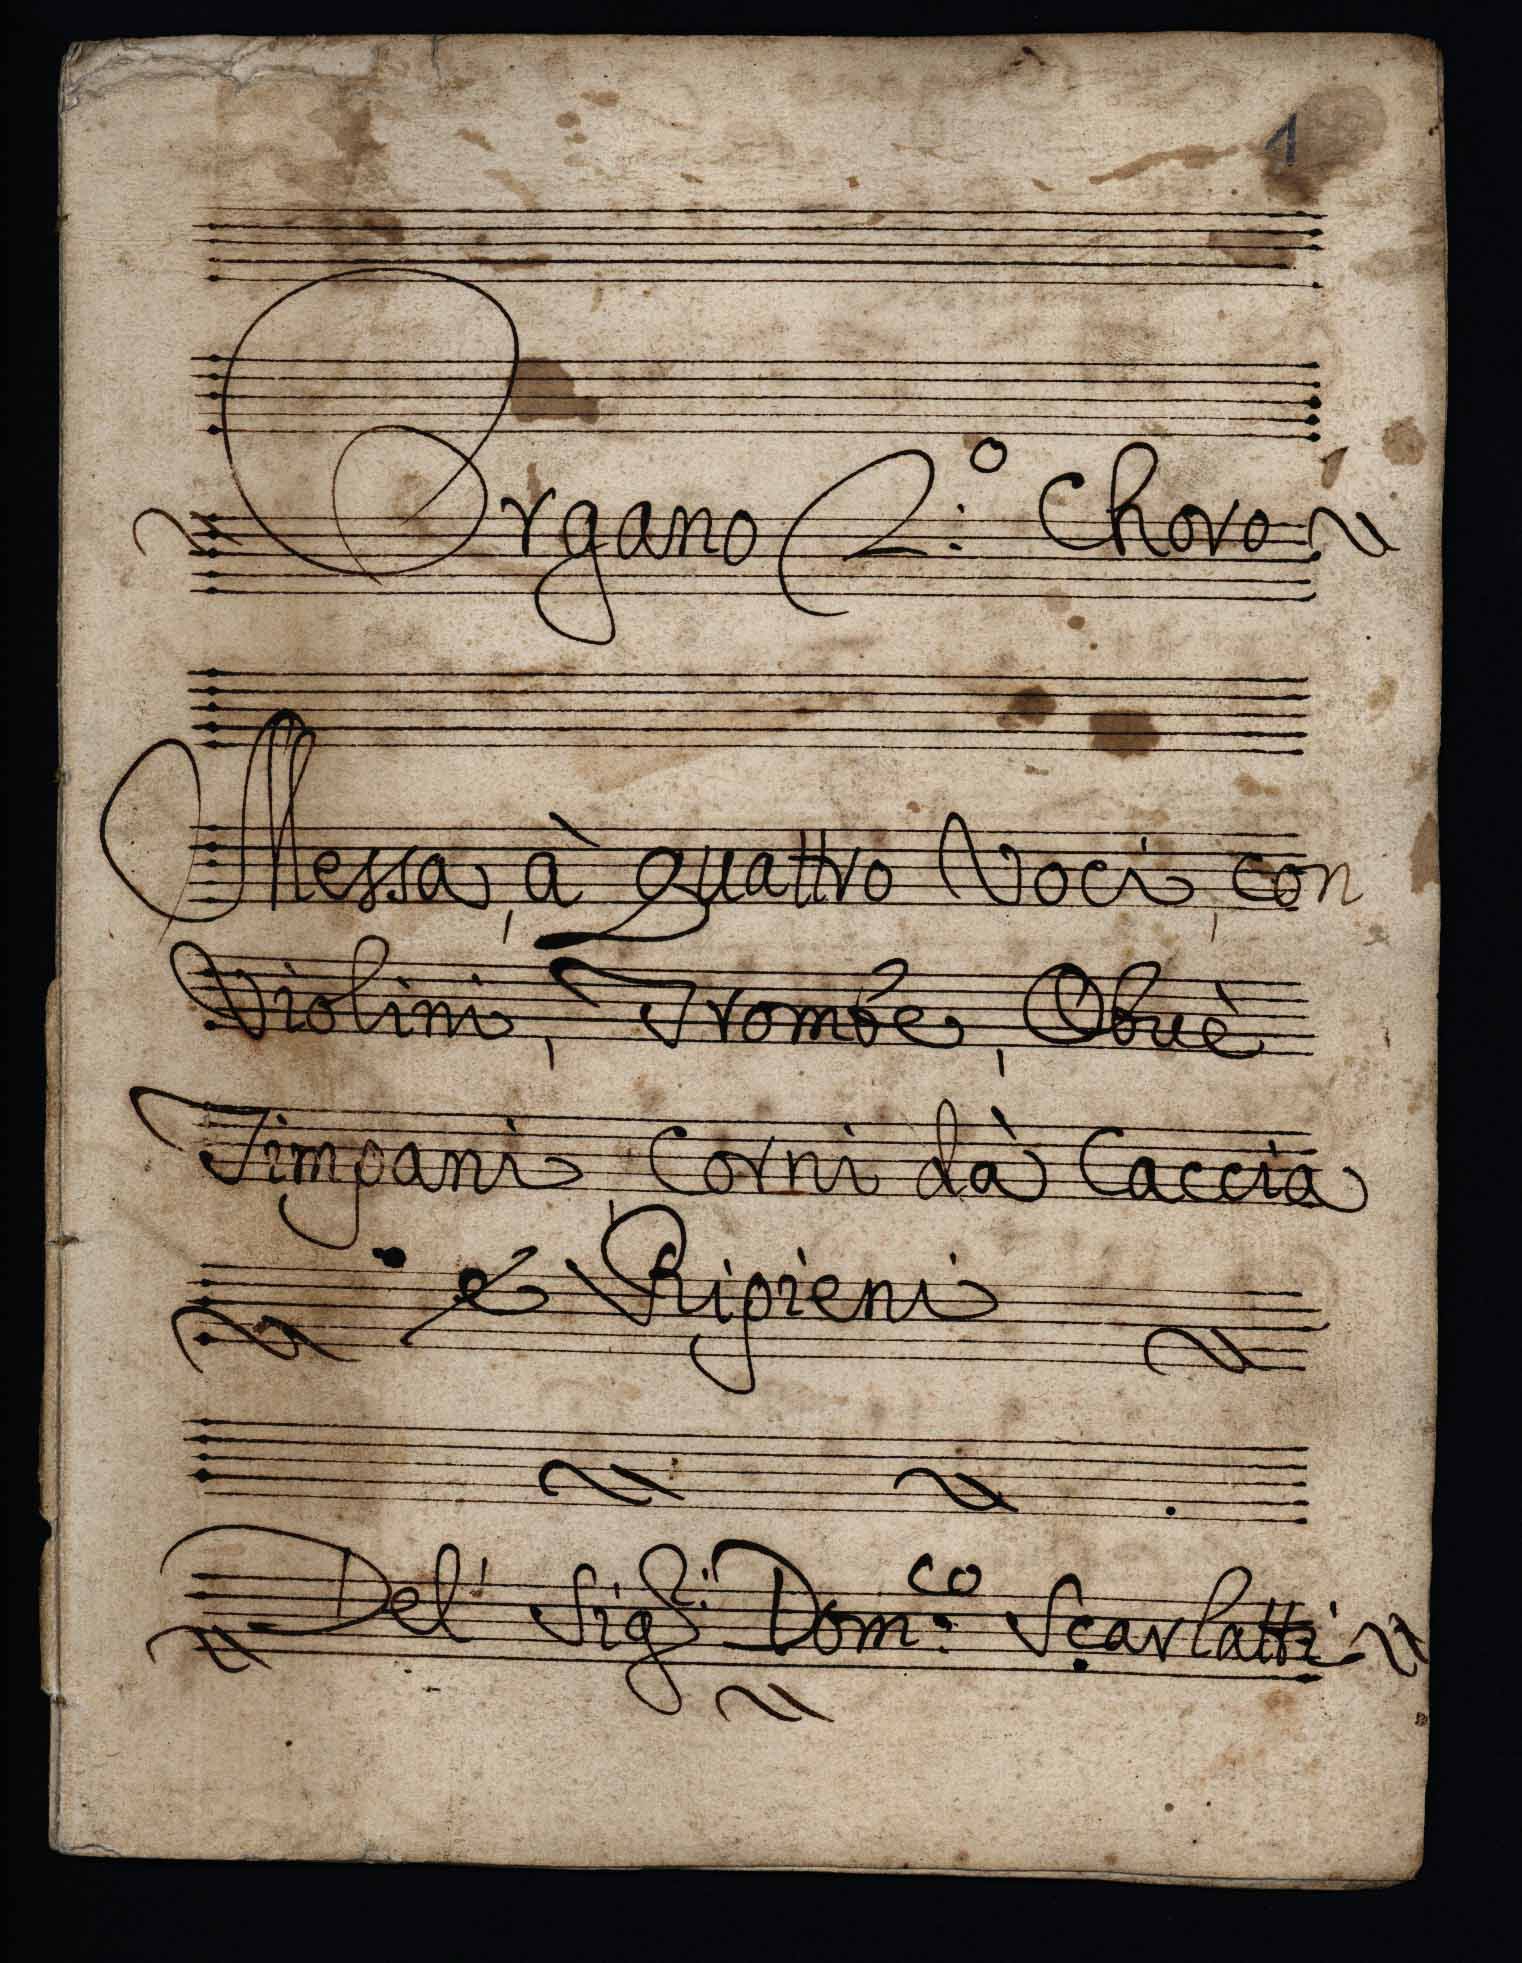 1
Organo 2.º Choro
Messa, à quattro Voci, con
Violini, Trombe, Obuè
Timpani, Corni dà Caccia
e Ripieni
Del' Sig.r Dom.co Scarlatti